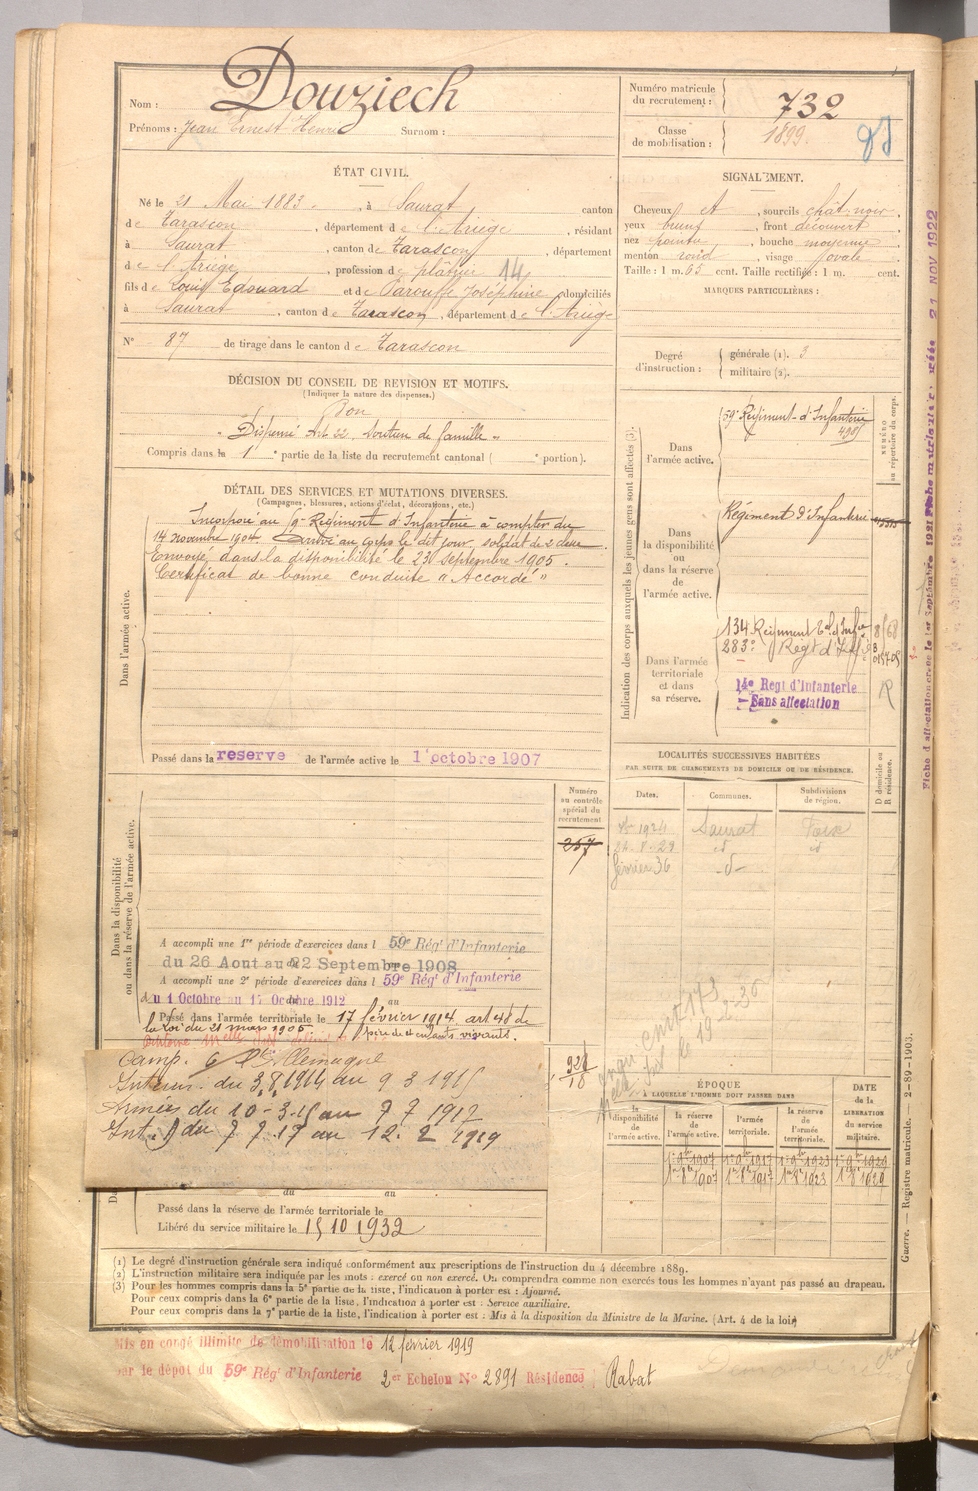 Nom : Douziech
Prénoms : Jean Ernest Henri Surnom :
Numéro matricule du recrutement : 732
Classe de mobilisation : 1899
ÉTAT CIVIL.
Né le 21 Mai 1883 , à Saurat canton
de Tarascon , département de l'Ariège , résidant
à Saurat , canton de Tarascon , département
de l'Ariège , profession de plâtrier 14
fils de Louis Edouard et de Parouffe Joséphine domiciliés
à Saurat , canton de Tarascon , département de l'Ariège
N° 87 de tirage dans le canton de Tarascon
SIGNALEMENT.
Cheveux et , sourcils chât. noir .
yeux , front découvert ,
nez pointu , bouche moyenne ,
menton rond , visage ovale .
Taille : 1 m. 65 cent. Taille rectifiée : 1 m. cent.
MARQUES PARTICULIÈRES :
Degré d'instruction : générale (1). 3
militaire (2).
DÉCISION DU CONSEIL DE REVISION ET MOTIFS.
(Indiquer la nature des dispenses.)
Bon
Dispensé Art. 22. Soutien de famille "
Compris dans la 1e partie de la liste du recrutement cantonal ( e portion).
DÉTAIL DES SERVICES ET MUTATIONS DIVERSES.
(Campagnes, blessures, actions d'éclat, décorations, etc.)
Dans l'armée active.
Incorporé au 59e Régiment d'Infanterie à compter du
14 novembre 1904. Arrivé au corps le dit jour, soldat de 2e classe.
Envoyé dans la disponibilité le 23 septembre 1905.
Certificat de bonne conduite "Accordé"
Passé dans la reserve de l'armée active le 1 octobre 1907
Indication des corps auxquels les jeunes gens sont affectés (3).
NUMÉRO au répertoire du corps.
Dans l'armée active.
59e Régiment d'Infanterie
Dans la disponibilité ou dans la réserve de l'armée active.
Régiment d'Infanterie
Dans l'armée territoriale et dans sa réserve.
134 Régiment Tal d'Infie 8/68
283e Régt d'Inf
14e Regt d'Infanterie
Sans affectation
R
LOCALITÉS SUCCESSIVES HABITÉES
PAR SUITE DE CHANGEMENTS DE DOMICILE OU DE RÉSIDENCE.
Dates. Communes. Subdivisions de région. D domicile ou R résidence.
1924 Saurat Foix
24-8-29 id id
février 36 -d-
Dans la disponibilité ou dans la réserve de l'armée active.
Numéro au contrôle spécial du recrutement
257
A accompli une 1re période d'exercices dans l 59e Régt d'Infanterie
du 26 Aout au 22 Septembre 1908
A accompli une 2e période d'exercices dans l 59e Régt d'Infanterie
du 1 Octobre au 17 Octobre 1912 au
Passé dans l'armée territoriale le 17 février 1914. art 48 de
la Loi du 21 mars 1905 père de 4 enfants vivants.
Camp. Allemagne
Intérieur. du 3.8.1914 au 9 3 1915
Armées du 10-3-15 au 7 7 1917
Int. du 7 7 17 au 12. 2 1919
du au
Passé dans la réserve de l'armée territoriale le
Libéré du service militaire le 15 10 1932
ÉPOQUE
A LAQUELLE L'HOMME DOIT PASSER DANS
la disponibilité de l'armée active. la réserve de l'armée active. l'armée territoriale. la réserve de l'armée territoriale.
DATE de la LIBERATION du service militaire.
1er 9bre 1907 1er 9bre 1917 1er 9bre 1923 1er 9bre 1929
1er 8bre 1907 1er 8bre 1917 1er 8bre 1923 1er 8bre 1929
(1) Le degré d'instruction générale sera indiqué conformément aux prescriptions de l'instruction du 4 décembre 1889.
(2) L'instruction militaire sera indiquée par les mots : exercé ou non exercé. On comprendra comme non exercés tous les hommes n'ayant pas passé au drapeau.
(3) Pour les hommes compris dans la 5e partie de la liste, l'indication à porter est : Ajourné.
Pour ceux compris dans la 6e partie de la liste, l'indication à porter est : Service auxiliaire.
Pour ceux compris dans la 7e partie de la liste, l'indication à porter est : Mis à la disposition du Ministre de la Marine. (Art. 4 de la loi)
Mis en congé illimité de démobilisation le 12 février 1919
par le dépot du 59e Régt d'Infanterie 2er Echelon No 2891 Résidence Rabat
Guerre. — Registre matricule. — 2-89-1903.
21 NOV 1922